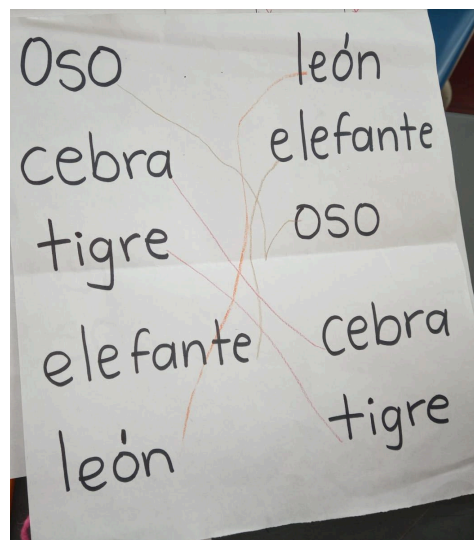 oso
cebra
tigre
elefante
león
león
elefante
oso
cebra
tigre